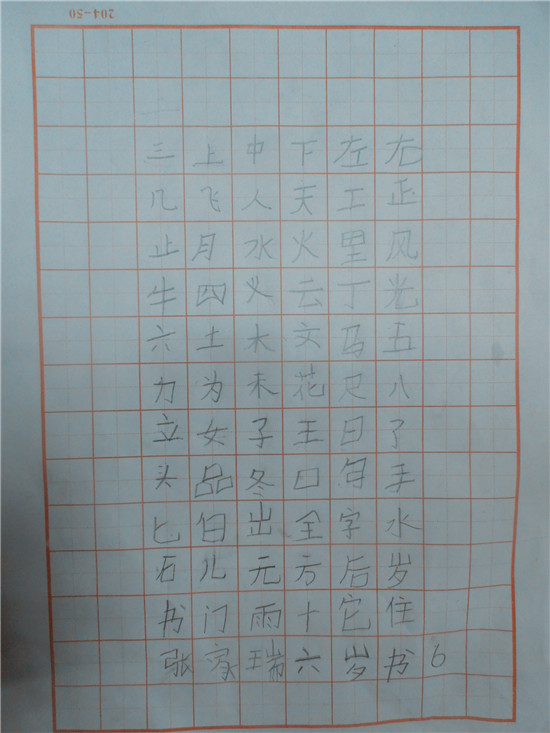 204-50
三上中下左右
几飞人天工正
止月水火里风
牛四义云丁光
六土木文马五
力为未花史八
立女子王日了
头品冬口句手
匕白出全字水
石儿元方后岁
书门雨十它住
张家瑞六岁书6